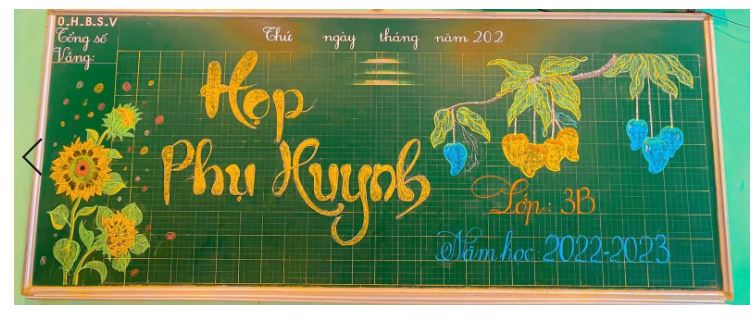 O.H.B.S.V
Thứ ngày tháng năm 202
Tổng số
Vắng:
Họp
Phụ Huynh
Lớp: 3B
Năm học: 2022-2023